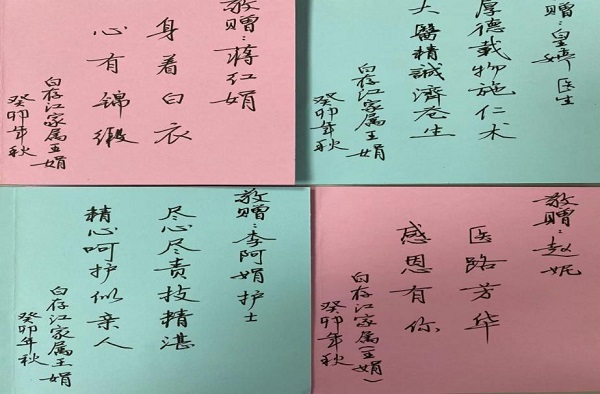 敬赠：蒋红娟
身着白衣
心有锦缎
白存江家属王娟
癸卯年秋
敬赠：皇婷医生
厚德载物施仁术
大醫精誠濟苍生
白存江家属王娟
癸卯年秋
敬赠：李阿娟护士
尽心尽责技精湛
精心呵护似亲人
白存江家属王娟
癸卯年秋
敬赠：赵妮
医路芳华
感恩有你
白存江家属（王娟）
癸卯年秋